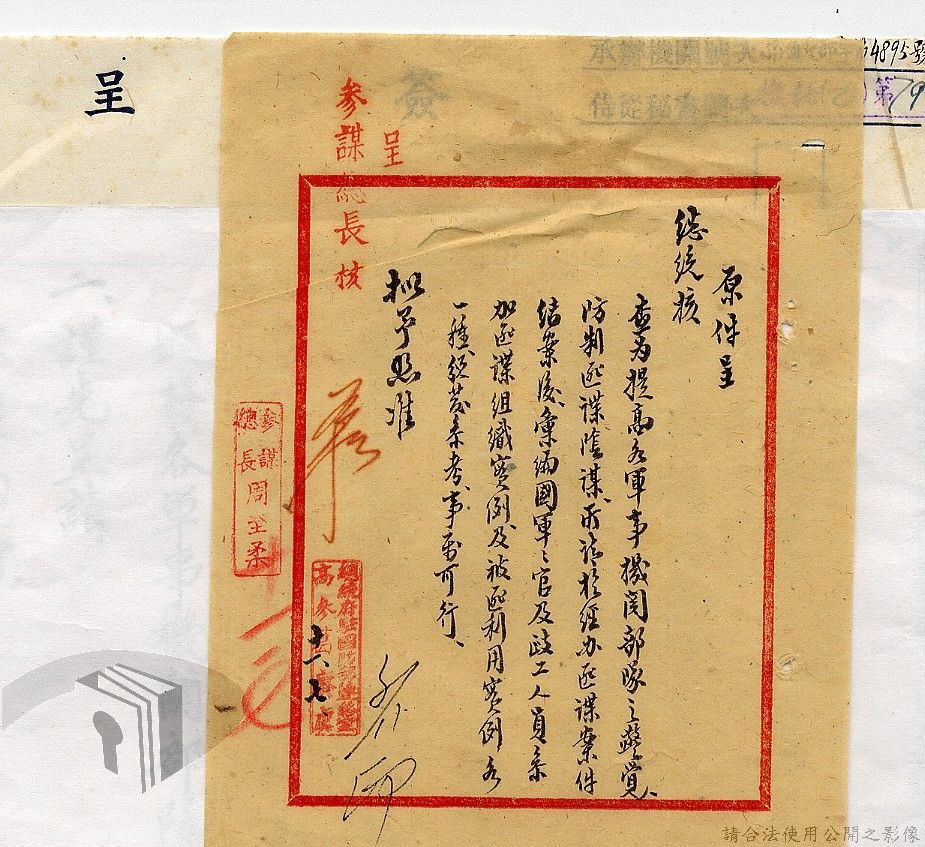 4895號
第79
呈
簽
呈
參謀總長核
原件呈
總統核
查為提高各軍事機關部隊之警覺、
防制匪諜陰謀、所請於經办匪諜案件
結案後、彙編國軍之官及政工人員参
加匪諜組織實例及被匪利用實例各
一種、頒發参考、事屬可行、
拟予照准
參謀總長周至柔
總統府駐國防部連絡室
高參
十六、七
請合法使用公開之影像